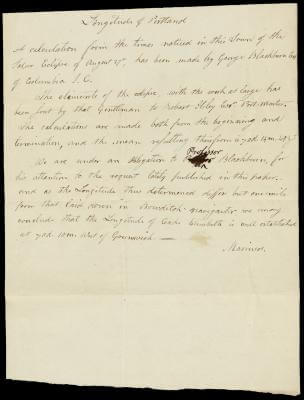 Longitude of Portland
A calculation from the times noticed in this Town of the
Solar Eclipse of August 27th, has been made by George Blackburn Esq
of Columbia S.C.
The elements of the eclipse, with the work at large has
been sent by that Gentleman to Robert Ilsley Esqr Post-Master.
The calculations are made both from the beginning and
termination, and the mean resulting therefrom is 70d 14m
We are under an obligation to Professor Blackburn, for
his attention to the request lately published in this paper.
and as the Longitude thus determined differ but one mile
from that laid down in Bowditch' navigator we may
conclude that the Longitude of Cape Elizabeth is well established
at 70d 10m. West of Greenwich —
Marinus.